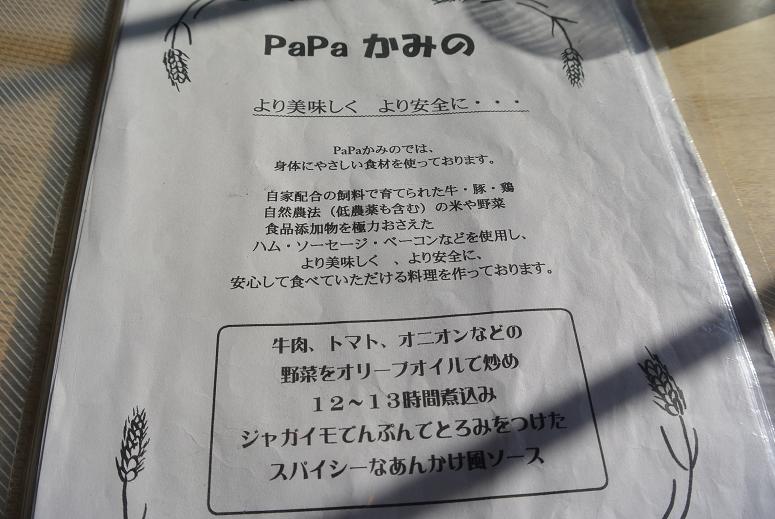 PaPa かみの
より美味しく より安全に・・・
PaPaかみのでは、
身体にやさしい食材を使っております。
自家配合の飼料で育てられた牛・豚・鶏
自然農法（低農薬も含む）の米や野菜
食品添加物を極力おさえた
ハム・ソーセージ・ベーコンなどを使用し、
より美味しく 、より安全に、
安心して食べていただける料理を作っております。
牛肉、トマト、オニオンなどの
野菜をオリーブオイルで炒め
１２～１３時間煮込み
ジャガイモでんぷんでとろみをつけた
スパイシーなあんかけ風ソース